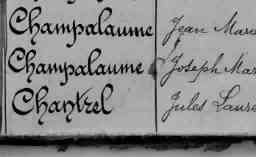 Champalaume Jean Mar
Champalaume Joseph Mar
Chantrel Jules Laure